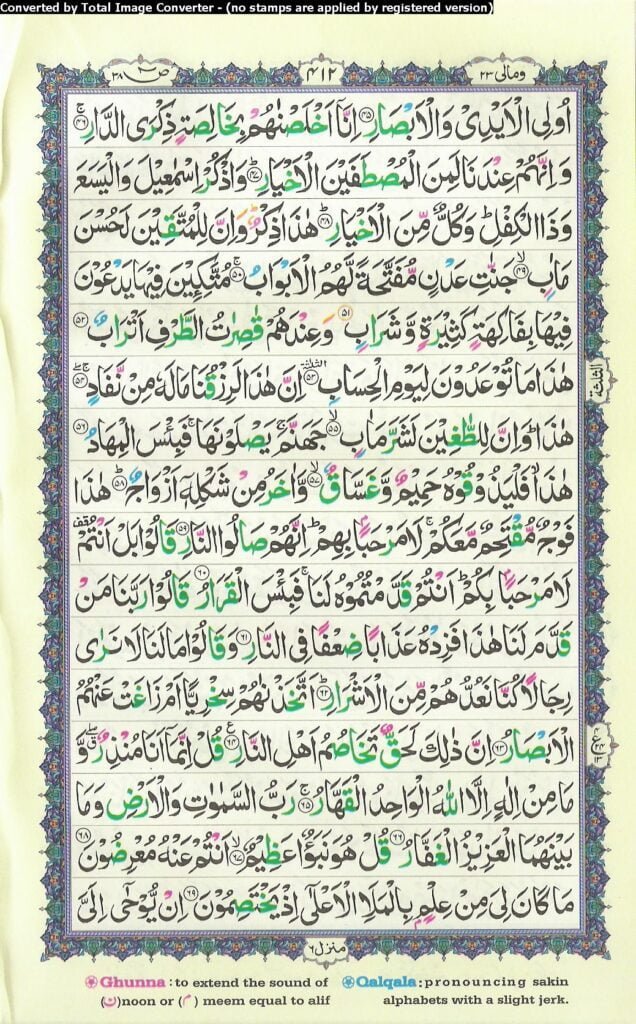 Converted by Total Image Converter - (no stamps are applied by registered version)
ومالی ۲۳
۴۱۲
ص ۳۸
اُولِی الْاَیْدِیْ وَالْاَبْصَارِ ﴿۴۵﴾ اِنَّاۤ اَخْلَصْنٰهُمْ بِخَالِصَةٍ ذِكْرَی الدَّارِ ۚ﴿۴۶﴾
وَاِنَّهُمْ عِنْدَنَا لَمِنَ الْمُصْطَفَیْنَ الْاَخْیَارِ ؕ﴿۴۷﴾ وَاذْكُرْ اِسْمٰعِیْلَ وَالْیَسَعَ
وَذَا الْكِفْلِ ؕ وَكُلٌّ مِّنَ الْاَخْیَارِ ؕ﴿۴۸﴾ هٰذَا ذِكْرٌ ؕ وَاِنَّ لِلْمُتَّقِیْنَ لَحُسْنَ
مَاٰبٍ ۙ﴿۴۹﴾ جَنّٰتِ عَدْنٍ مُّفَتَّحَةً لَّهُمُ الْاَبْوَابُ ۚ﴿۵۰﴾ مُتَّكِـِٕیْنَ فِیْهَا یَدْعُوْنَ
فِیْهَا بِفَاكِهَةٍ كَثِیْرَةٍ وَّشَرَابٍ ﴿۵۱﴾ وَعِنْدَهُمْ قٰصِرٰتُ الطَّرْفِ اَتْرَابٌ ﴿۵۲﴾
هٰذَا مَا تُوْعَدُوْنَ لِیَوْمِ الْحِسَابِ ﴿۵۳﴾ اِنَّ هٰذَا لَرِزْقُنَا مَا لَهٗ مِنْ نَّفَادٍ ۚۖ﴿۵۴﴾
الثلثة
هٰذَا ؕ وَاِنَّ لِلطّٰغِیْنَ لَشَرَّ مَاٰبٍ ۙ﴿۵۵﴾ جَهَنَّمَ ۚ یَصْلَوْنَهَا ۚ فَبِئْسَ الْمِهَادُ ﴿۵۶﴾
هٰذَا ۙ فَلْیَذُوْقُوْهُ حَمِیْمٌ وَّغَسَّاقٌ ۙ﴿۵۷﴾ وَّاٰخَرُ مِنْ شَكْلِهٖۤ اَزْوَاجٌ ؕ﴿۵۸﴾ هٰذَا
فَوْجٌ مُّقْتَحِمٌ مَّعَكُمْ ۚ لَا مَرْحَبًۢا بِهِمْ ؕ اِنَّهُمْ صَالُوا النَّارِ ﴿۵۹﴾ قَالُوْا بَلْ اَنْتُمْ
لَا مَرْحَبًۢا بِكُمْ ؕ اَنْتُمْ قَدَّمْتُمُوْهُ لَنَا ۚ فَبِئْسَ الْقَرَارُ ﴿۶۰﴾ قَالُوْا رَبَّنَا مَنْ
قَدَّمَ لَنَا هٰذَا فَزِدْهُ عَذَابًا ضِعْفًا فِی النَّارِ ﴿۶۱﴾ وَقَالُوْا مَا لَنَا لَا نَرٰی
رِجَالًا كُنَّا نَعُدُّهُمْ مِّنَ الْاَشْرَارِ ؕ﴿۶۲﴾ اَتَّخَذْنٰهُمْ سِخْرِیًّا اَمْ زَاغَتْ عَنْهُمُ
الْاَبْصَارُ ﴿۶۳﴾ اِنَّ ذٰلِكَ لَحَقٌّ تَخَاصُمُ اَهْلِ النَّارِ ﴿۶۴﴾ قُلْ اِنَّمَاۤ اَنَا مُنْذِرٌ ۖۗ وَّ
مَا مِنْ اِلٰهٍ اِلَّا اللّٰهُ الْوَاحِدُ الْقَهَّارُ ۚ﴿۶۵﴾ رَبُّ السَّمٰوٰتِ وَالْاَرْضِ وَمَا
بَیْنَهُمَا الْعَزِیْزُ الْغَفَّارُ ﴿۶۶﴾ قُلْ هُوَ نَبَؤٌا عَظِیْمٌ ۙ﴿۶۷﴾ اَنْتُمْ عَنْهُ مُعْرِضُوْنَ ﴿۶۸﴾
مَا كَانَ لِیَ مِنْ عِلْمٍۭ بِالْمَلَاِ الْاَعْلٰۤی اِذْ یَخْتَصِمُوْنَ ﴿۶۹﴾ اِنْ یُّوْحٰۤی اِلَیَّ
منزل ۶
Ghunna : to extend the sound of
(ن)noon or (م) meem equal to alif
Qalqala: pronouncing sakin
alphabets with a slight jerk.